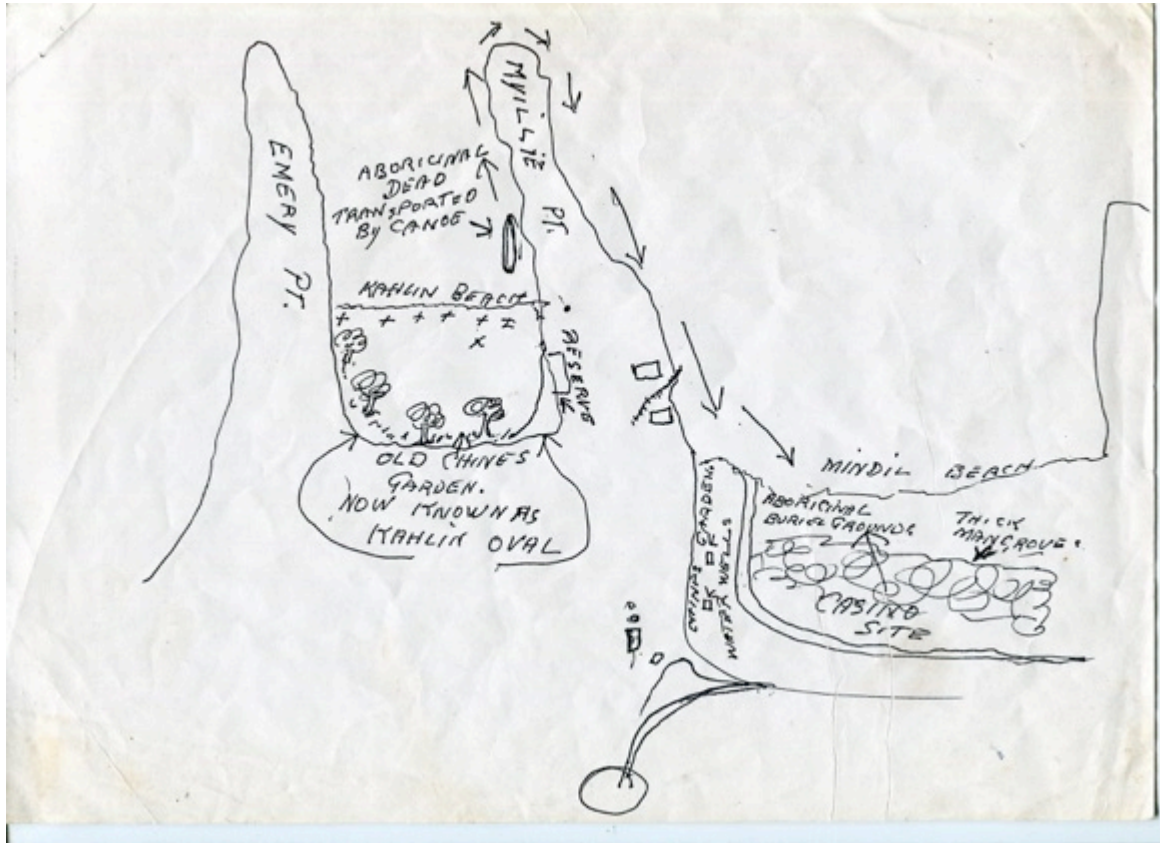 EMERY PT.
MYILLYE PT.
ABORIGINAL
DEAD
TRANSPORTED
By CANOE
KAHLIN BEACH
RESERVE
OLD CHINES
GARDEN.
NOW KNOWN AS
KAHLIN OVAL
MINDIL BEACH
ABORIGINAL
BURIEL GROUNDS
THICK
MANGROVE.
CASINO
SITE